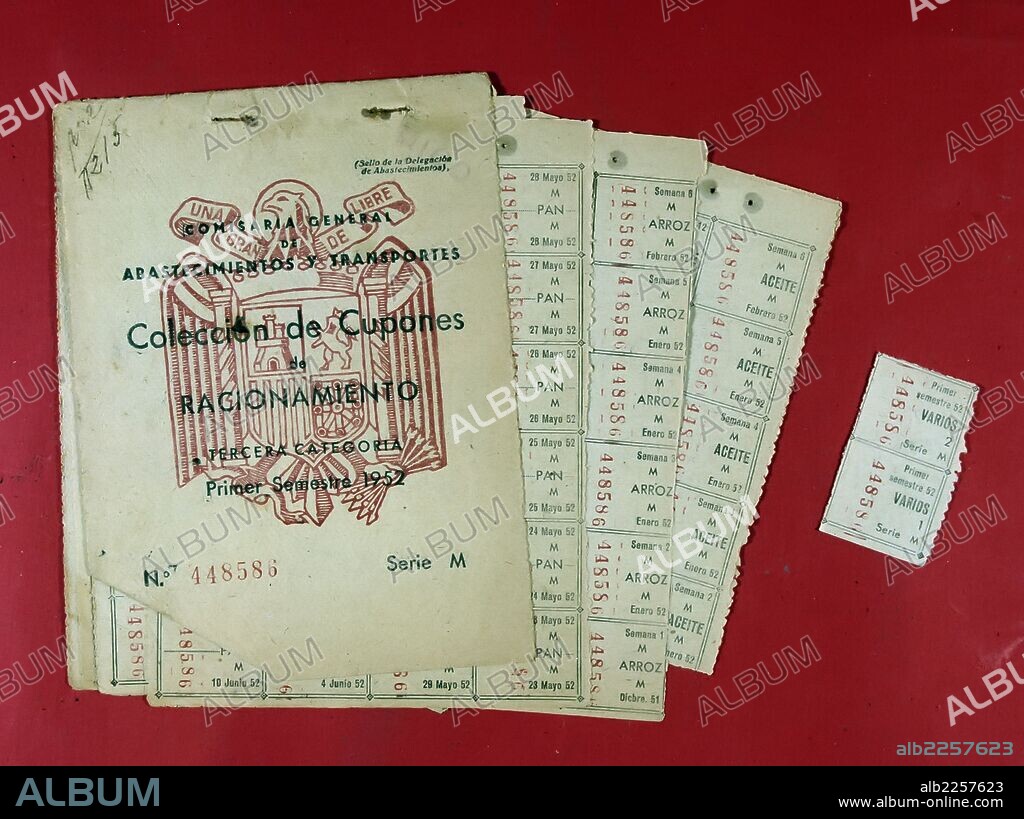 (Sello de la Delegación
de Abastecimientos),
UNA GRANDE LIBRE
COMISARIA GENERAL
DE
ABASTECIMIENTOS Y TRANSPORTES
Colección de Cupones
de
RACIONAMIENTO
TERCERA CATEGORIA
Primer Semestre 1952
N.º 448586
Serie M
448586
448586
M
10 Junio 52
M
4 Junio 52
M
29 Mayo 52
28 Mayo 52
M
PAN
M
28 Mayo 52
448586
27 Mayo 52
M
PAN
M
27 Mayo 52
448586
26 Mayo 52
M
PAN
M
26 Mayo 52
25 Mayo 52
M
PAN
M
25 Mayo 52
24 Mayo 52
M
PAN
M
24 Mayo 52
M
PAN
M
23 Mayo 52
448586
Semana 6
M
ARROZ
M
Febrero 52
448586
Semana 5
M
ARROZ
M
Enero 52
448586
Semana 4
M
ARROZ
M
Enero 52
448586
Semana 3
M
ARROZ
M
Enero 52
448586
Semana 2
M
ARROZ
M
Enero 52
448586
Semana 1
M
ARROZ
M
Dicbre. 51
448586
Semana 6
M
ACEITE
M
Febrero 52
448586
Semana 5
M
ACEITE
M
Enero 52
448586
Semana 4
M
ACEITE
M
Enero 52
Semana 3
M
ACEITE
M
Enero 52
Semana 2
M
ACEITE
M
Enero 52
448586
Primer
semestre 52
VARIOS
2
Serie M
448586
Primer
semestre 52
VARIOS
1
Serie M
ALBUM
alb2257623
ALBUM
alb2257623
www.album-online.com